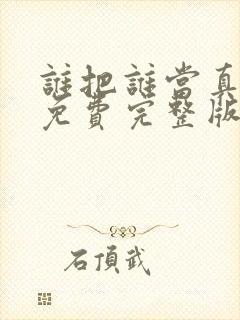 誰把誰當真
免費完整版
石頂武